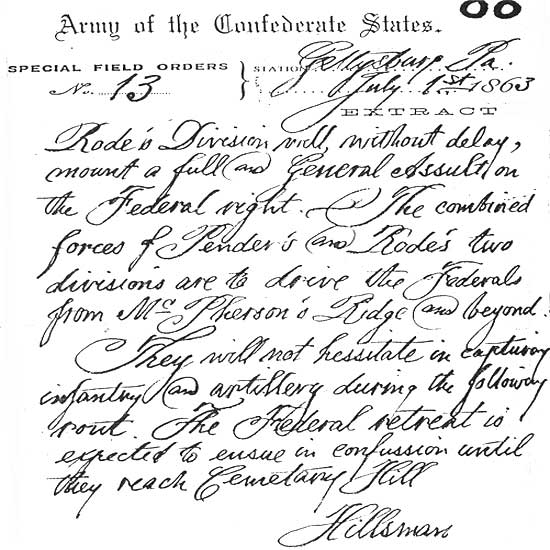 88
Army of the Confederate States.
SPECIAL FIELD ORDERS
No. 13
STATION
Gettysburg, Pa.
July 1st 1863
EXTRACT
Rode's Division will, without delay,
mount a full and General Assult on
the Federal right. The combined
forces of Pender's and Rode's two
divisions are to drive the Federals
from Mc Pherson's Ridge and beyond.
They will not hessitate in capturing
infantry and artillery during the following
rout. The Federal retreat is
expected to ensue in confussion until
they reach Cemetary Hill
Hillsman